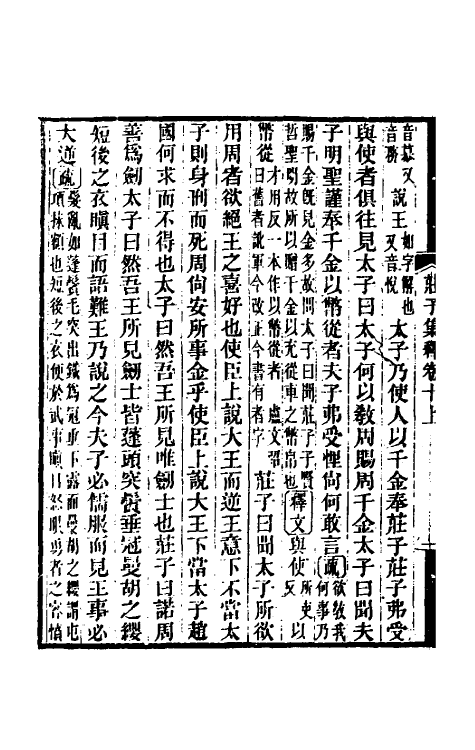 莊子集釋卷十上
音慕又音務說王如字解也又音悅太子乃使人以千金奉莊子莊子弗受
與使者俱往見太子曰太子何以敎周賜周千金太子曰聞夫
子明聖謹奉千金以幣從者夫子弗受悝尚何敢言疏欲敎我何事乃
賜千金旣見金多故問太子曰聞莊子賢哲聖明故所以贈千金以充從車之幣帛也釋文與使所吏反以
幣從才用反一本作以幣從者盧文弨曰舊者訛軍今改正今書有者字莊子曰聞太子所欲
用周者欲絕王之喜好也使臣上說大王而逆王意下不當太
子則身刑而死周尚安所事金乎使臣上說大王下當太子趙
國何求而不得也太子曰然吾王所見唯劍士也莊子曰諾周
善爲劍太子曰然吾王所見劍士皆蓬頭突鬢垂冠曼胡之纓
短後之衣瞋目而語難王乃說之今夫子必儒服而見王事必
大逆疏髮亂如蓬鬢毛突出鐵爲冠垂下露面曼胡之纓謂屯項抹額也短後之衣便於武事瞋目怒眼勇者之容憤